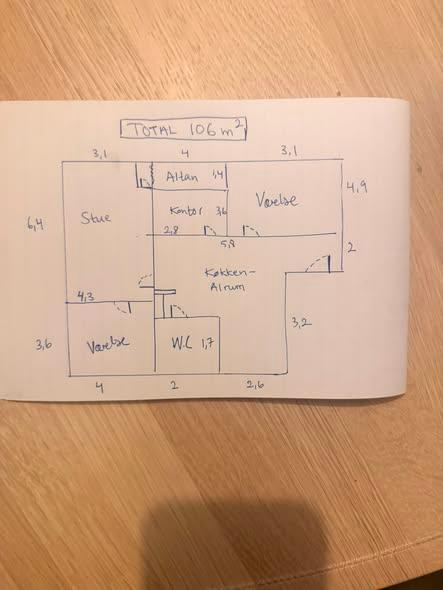 TOTAL 106 m²
3,1 4 3,1
Altan 1,4
4,9
Kontor 3,6
Værelse
6,4
Stue
2,8
5,8
2
Køkken-
Alrum
4,3
3,2
3,6
Værelse
W.C 1,7
4 2 2,6